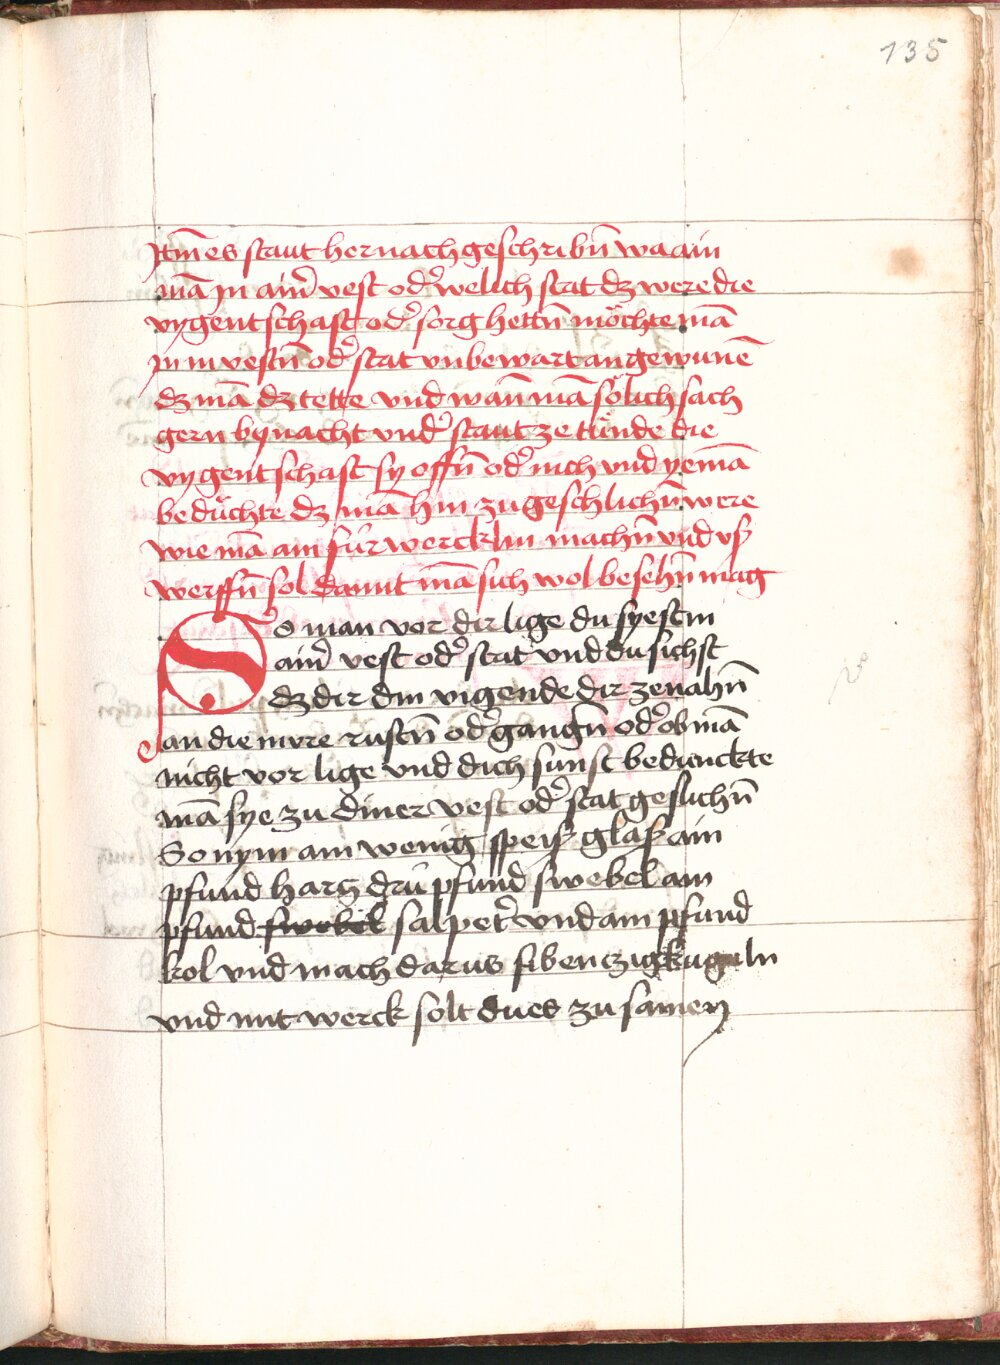 135
Itm̄ es staut hernach geschribn̄ wa ain
mā jn aim̄ vest od̾ welich stat dz were die
vygentschafft od̾ sorg hettn̄ möchte mā
jn in vestn̄ od̾ stat vnbewart an gewunē
dz mā dz tette vnd wān mā sölich sach
gern by nacht vnd̾ staut ze tünde die
vygentschafft sy offn̄ od̾ nich vnd yemā
bedüchte dz mā hin zu geschlichn̄ were
wie mā ain fürwercklin machn̄ vnd vß
werffn̄ sol damit mā sich wol besehn̄ mag
So man vor dir lige du syest in
aim̄ vest od̾ stat vnd du sichst
dz dir din vigende dir ze nahn̄
an die mvre rustn̄ od̾ gangn̄ od̾ ob mā
nicht vor lige vnd dich sunst beduncke
mā sye zu diner vest od̾ stat geslichn̄
So nym ain wenig speiß glaß ain
pfund harcz drü pfund swebel ain
pfund swebel salpet̾ vnd ain pfund
kol vnd mach darus sibenczig kugeln
vnd mit werck solt du es zu samen